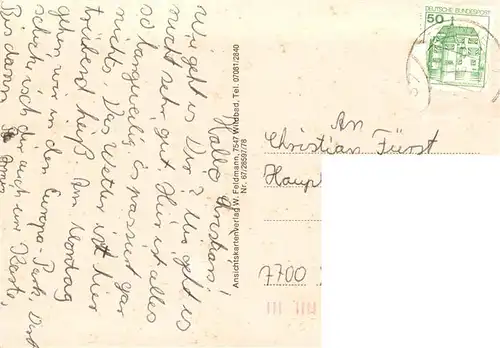 Hallo Christian!
Wie geht es Dir? Mir geht es
nicht sehr gut. Hier ist alles
so langweilig es passiert gar
nichts. Das Wetter ist hier
trübend heiß. Am Montag
gehen wir in den Europa-Park. Dort
schick ich dir auch eine Karte.
Bis dann
Ansichtskartenverlag W. Feldmann, 7547 Wildbad, Tel. 07081/2840
Nr. 67/26597/78
DEUTSCHE BUNDESPOST
50
An
Christian Fürst
Haupt
7700